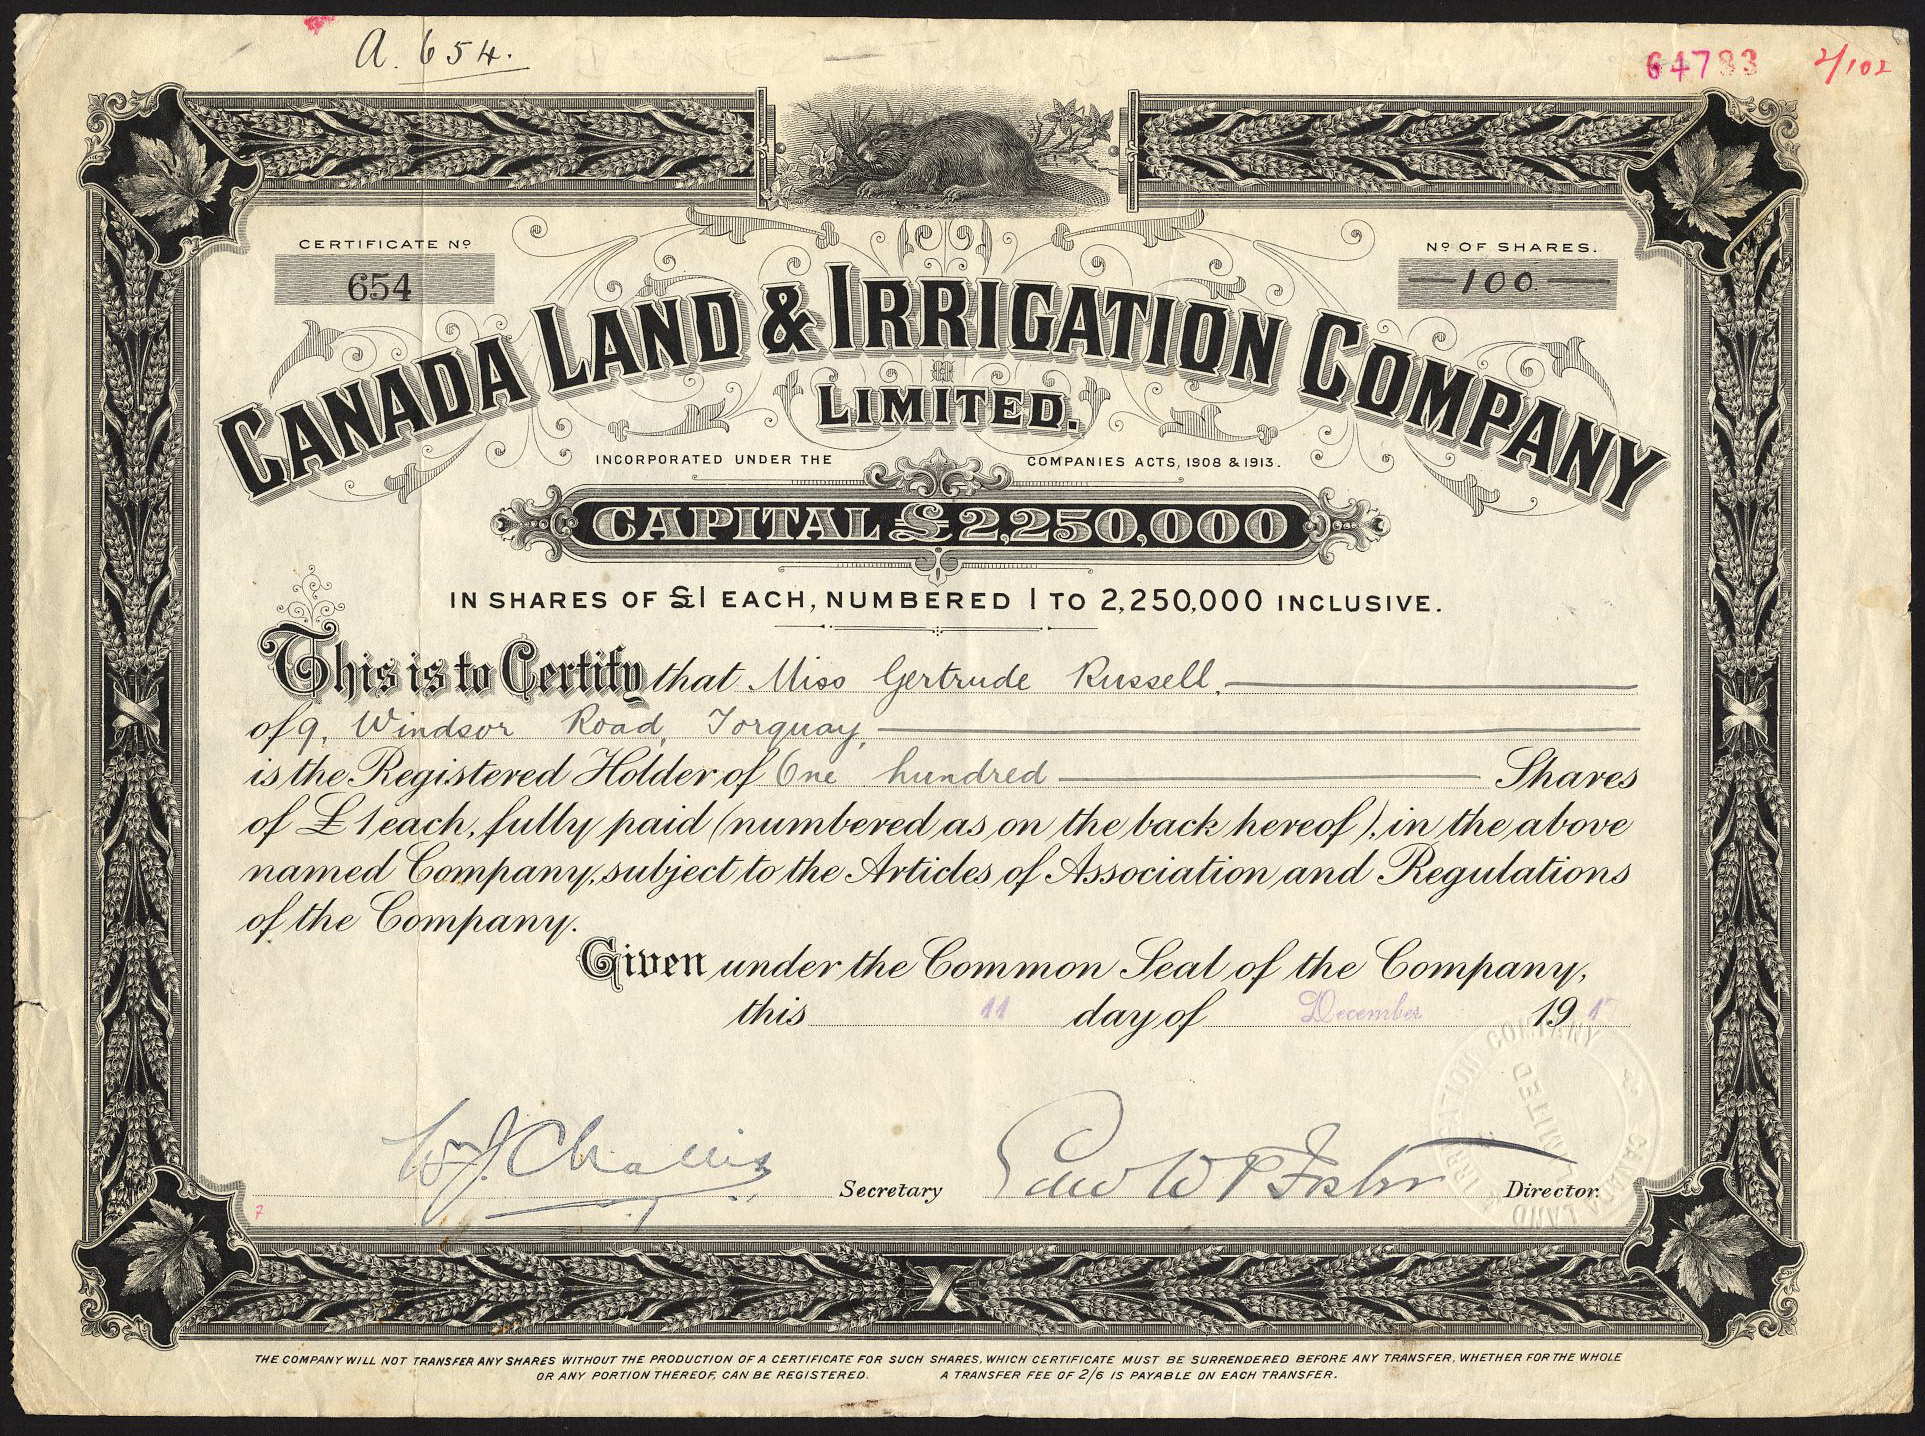 A. 654.
64783 2/102
CERTIFICATE Nº
654
Nº OF SHARES.
100
CANADA LAND & IRRIGATION COMPANY
LIMITED.
INCORPORATED UNDER THE COMPANIES ACTS, 1908 & 1913.
CAPITAL £2,250,000
IN SHARES OF £1 EACH, NUMBERED 1 TO 2,250,000 INCLUSIVE.
This is to Certify that Miss Gertrude Russell,
of 9, Windsor Road, Torquay,
is the Registered Holder of One hundred Shares
of £1 each, fully paid (numbered as on the back hereof), in the above
named Company, subject to the Articles of Association and Regulations
of the Company.
Given under the Common Seal of the Company,
this 11 day of December 191
Wm J. Challis Secretary
Director.
CANADA LAND & IRRIGATION COMPANY
LIMITED
7
THE COMPANY WILL NOT TRANSFER ANY SHARES WITHOUT THE PRODUCTION OF A CERTIFICATE FOR SUCH SHARES, WHICH CERTIFICATE MUST BE SURRENDERED BEFORE ANY TRANSFER, WHETHER FOR THE WHOLE
OR ANY PORTION THEREOF, CAN BE REGISTERED. A TRANSFER FEE OF 2/6 IS PAYABLE ON EACH TRANSFER.